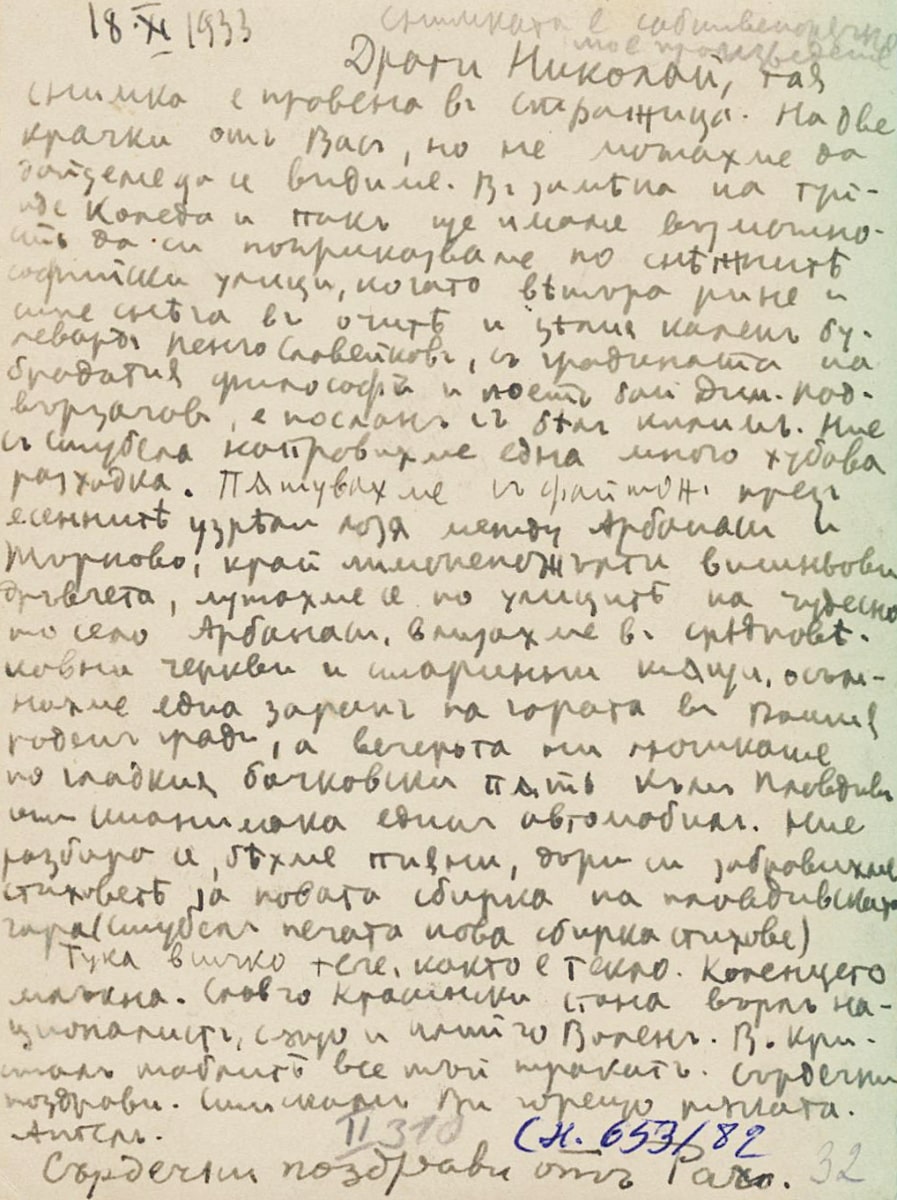 18.XI 1933
снимката е собственоръчно
мое произведение
Драги Николай, тая
снимка е правена въ Стражица. На две
крачки отъ Васъ, но не можахме да
дойдеме да се видиме. Въ замѣна на
Коледа и пакъ ще имаме възможно-
сть да си поприказваме по снѣжнитѣ
софийски улици, когато вѣтъра рине и
снѣга въ очитѣ и цѣлия каленъ бу-
левардъ Пенчо Славейковъ, съ градината на
брадатия философъ и поетъ бай Дим. Под-
вързачовъ, е посланъ съ бѣлъ килимъ. Ние
съ Стубела направихме една много хубава
разходка. Пѫтувахме съ файтонъ презъ
есеннитѣ узрѣли лозя между Арбанаси и
Търново, край лимоненожълти вишньови
дръвчета, лутахме се по улицитѣ на чудесно
то село Арбанаси, влизахме въ срѣдновѣ-
ковни черкви и старинни кѫщи, осъм-
нахме една заринь на гората въ Вашия
роденъ градъ, а вечерьта ни люшкаше
по гладкия бачковски пѫть къмъ Пловдивъ
или Станимака единъ автомобилъ. Ние
разбира се, бѣхме пияни, дори си забравихме
стиховетѣ за новата сбирка на пловдивската
гара (Стубелъ печата нова сбирка стихове)
Тука всичко тече, както е текло. Коленцето
млъкна. Славчо Красински стана върлъ на-
ционалистъ, също и Воленъ. В. Кри-
сталъ таблитѣ все тъй тракатъ. Сърдечни
поздрави. Стискамъ Ви горещо рѫката.
Ангелъ.
II 310
Сн. 653/82
Сърдечни поздрави отъ Рачо.
32